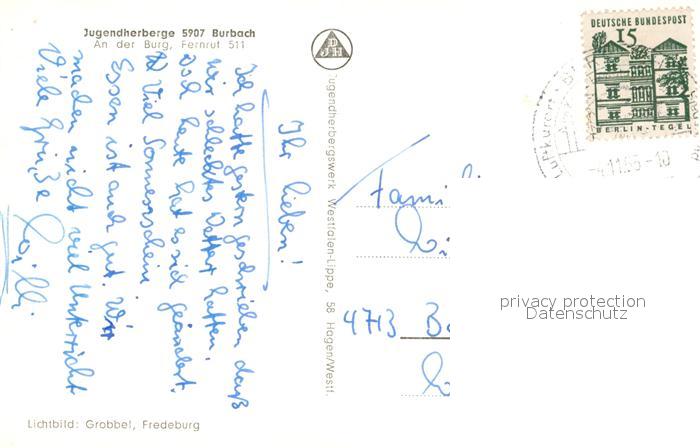 Jugendherberge 5907 Burbach
An der Burg, Fernruf 511
Ihr lieben!
Ich hatte gestern geschrieben, daß
wir schlechtes Wetter hatten.
Doch heute hat es sich geändert.
Viel Sonnenschein
Essen ist auch gut. Wir
machen nicht viel Unterricht
Viele Grüße
Willi
Lichtbild: Grobbel, Fredeburg
DJH
Jugendherbergswerk Westfalen-Lippe, 58 Hagen/Westf.
DEUTSCHE BUNDESPOST
15
BERLIN-TEGEL
Luftkurort
Famil
4713 B
privacy protection
Datenschutz